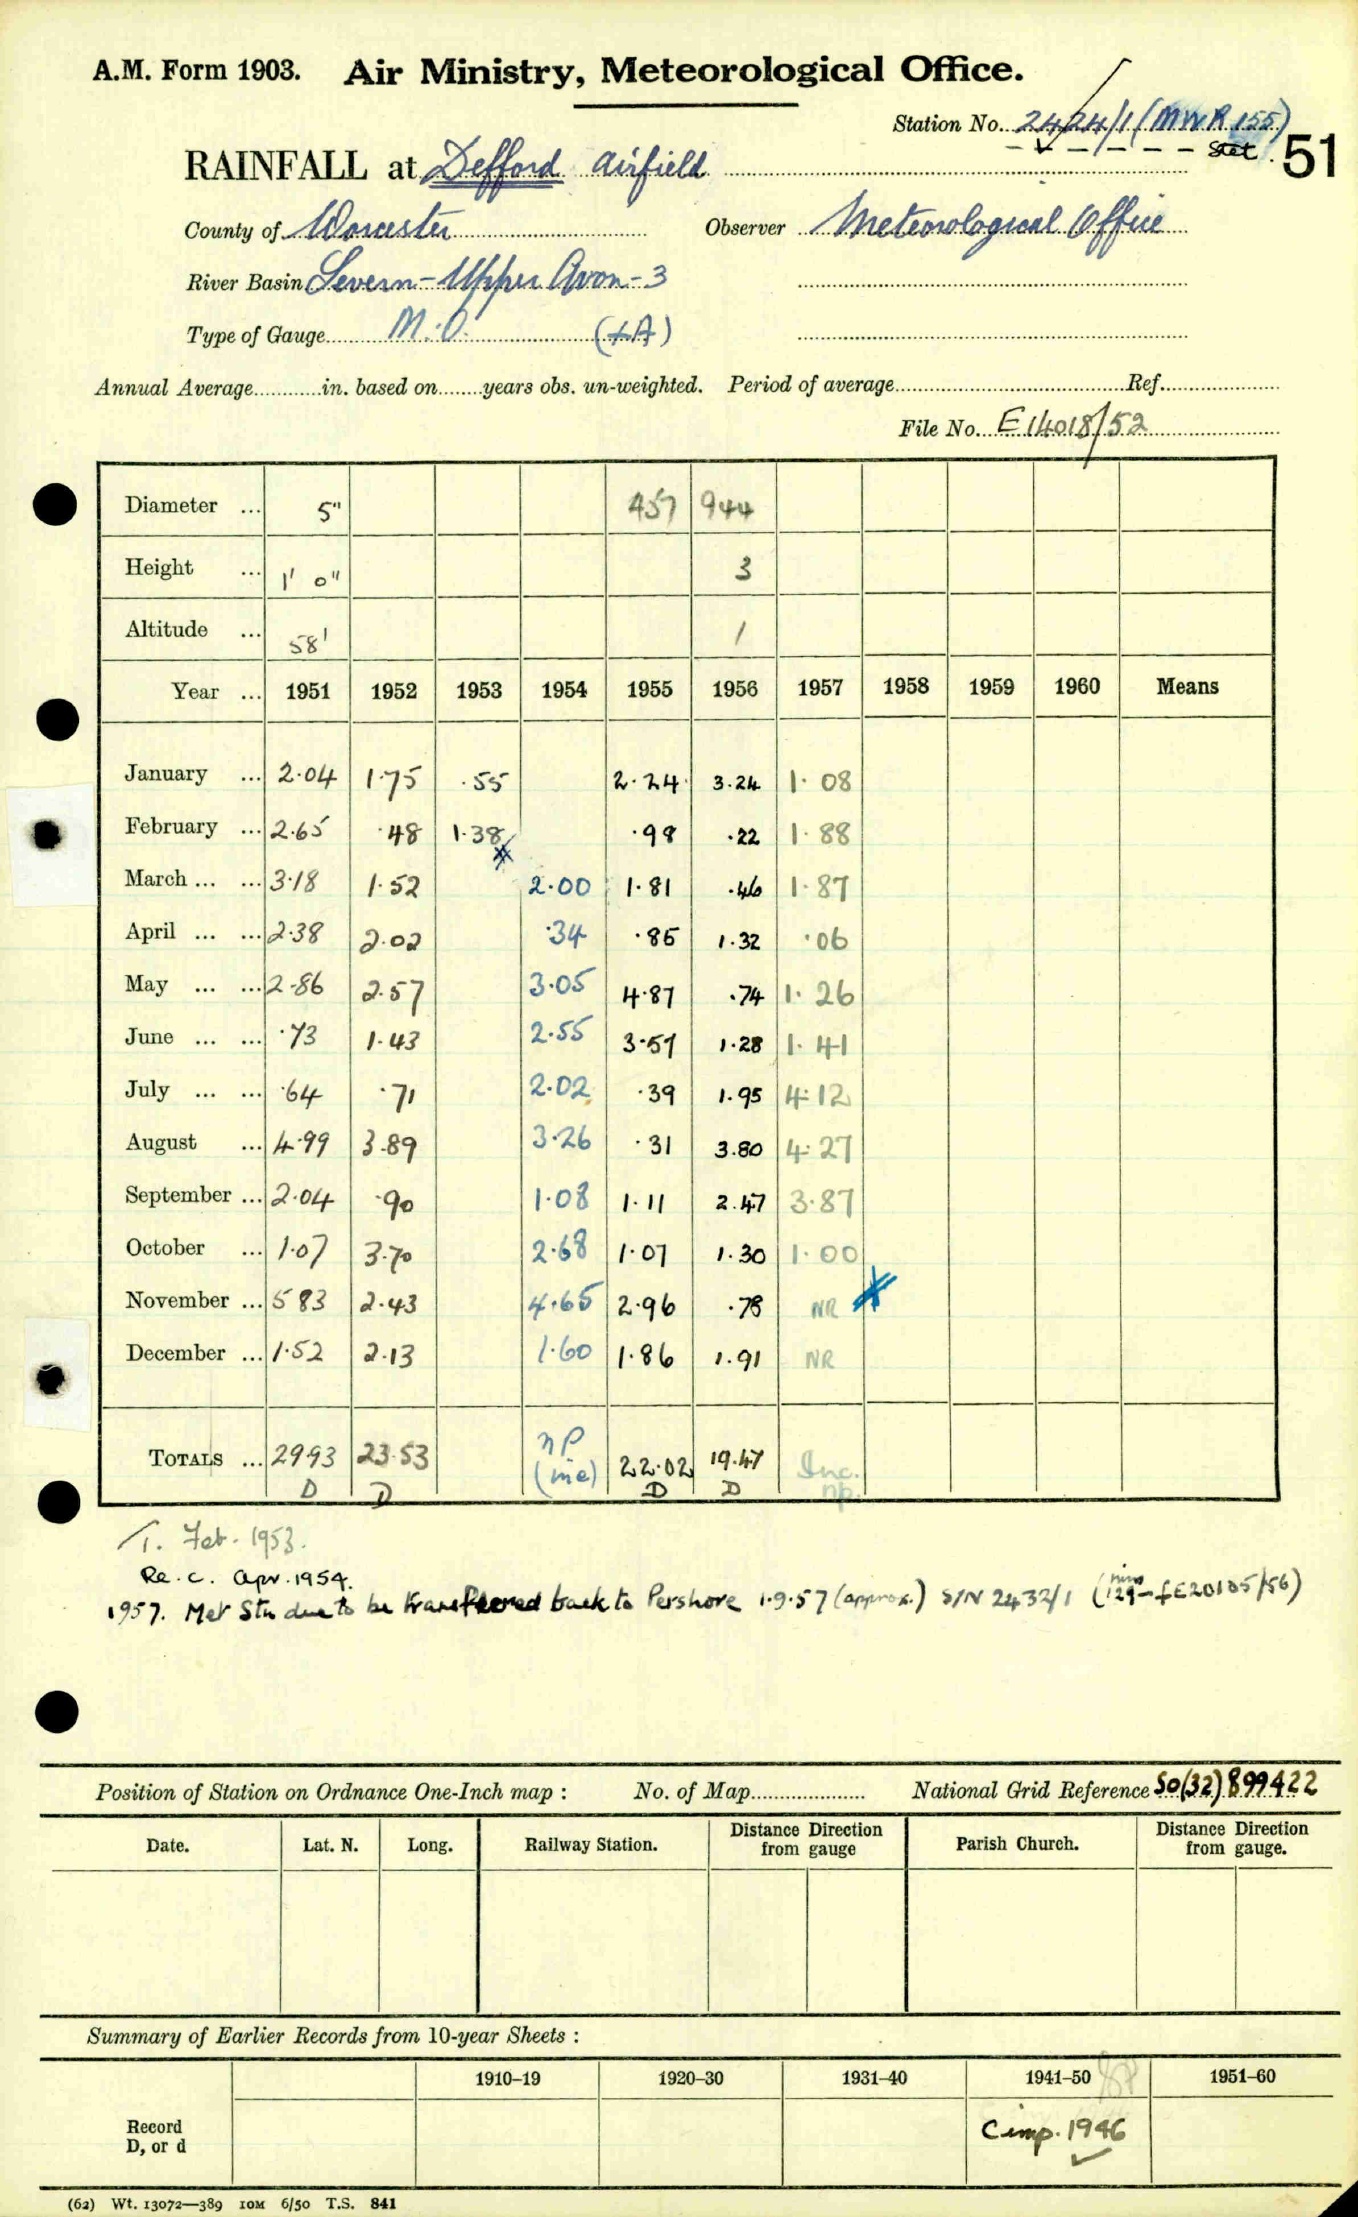 A.M. Form 1903. Air Ministry, Meteorological Office.
Station No. 2424/1 (MWR 155)
Stet.
51
RAINFALL at Defford airfield
County of Worcester Observer Meteorological Office
River Basin Severn-Upper Avon-3
Type of Gauge M.O. (LA)
Annual Average in. based on years obs. un-weighted. Period of average Ref.
File No. E14018/52
Diameter ... 5" 457 944
Height ... 1' 0" 3
Altitude ... 58' 1
Year ... 1951 1952 1953 1954 1955 1956 1957 1958 1959 1960 Means
January ... 2.04 1.75 .55 2.24 3.24 1.08
February ... 2.65 .48 1.38 .98 .22 1.88
March ... ... 3.18 1.52 2.00 1.81 .46 1.87
April ... ... 2.38 2.02 .34 .85 1.32 .06
May ... ... 2.86 2.57 3.05 4.87 .74 1.26
June ... ... .73 1.43 2.55 3.57 1.28 1.41
July ... ... .64 .71 2.02 .39 1.95 4.12
August ... 4.99 3.89 3.26 .31 3.80 4.27
September ... 2.04 .90 1.08 1.11 2.47 3.87
October ... 1.07 3.70 2.68 1.07 1.30 1.00
November ... 5 83 2.43 4.65 2.96 .78 NR
December ... 1.52 2.13 1.60 1.86 1.91 NR
TOTALS ... 29.93 23.53 np (inc) 22.02 19.47 Inc. np.
D D D D
T. Feb. 1953.
Re. c. Apr. 1954.
1957. Met Stn due to be transferred back to Pershore 1.9.57 (approx.) S/N 2432/1 (mins 129 - f E20105/56)
Position of Station on Ordnance One-Inch map : No. of Map National Grid Reference SO(32) 899422
Date. Lat. N. Long. Railway Station. Distance Direction from gauge Parish Church. Distance Direction from gauge.
Summary of Earlier Records from 10-year Sheets :
1910–19 1920–30 1931–40 1941–50 1951–60
Record
D, or d
C imp. 1946
(62) Wt. 13072—389 10M 6/50 T.S. 841